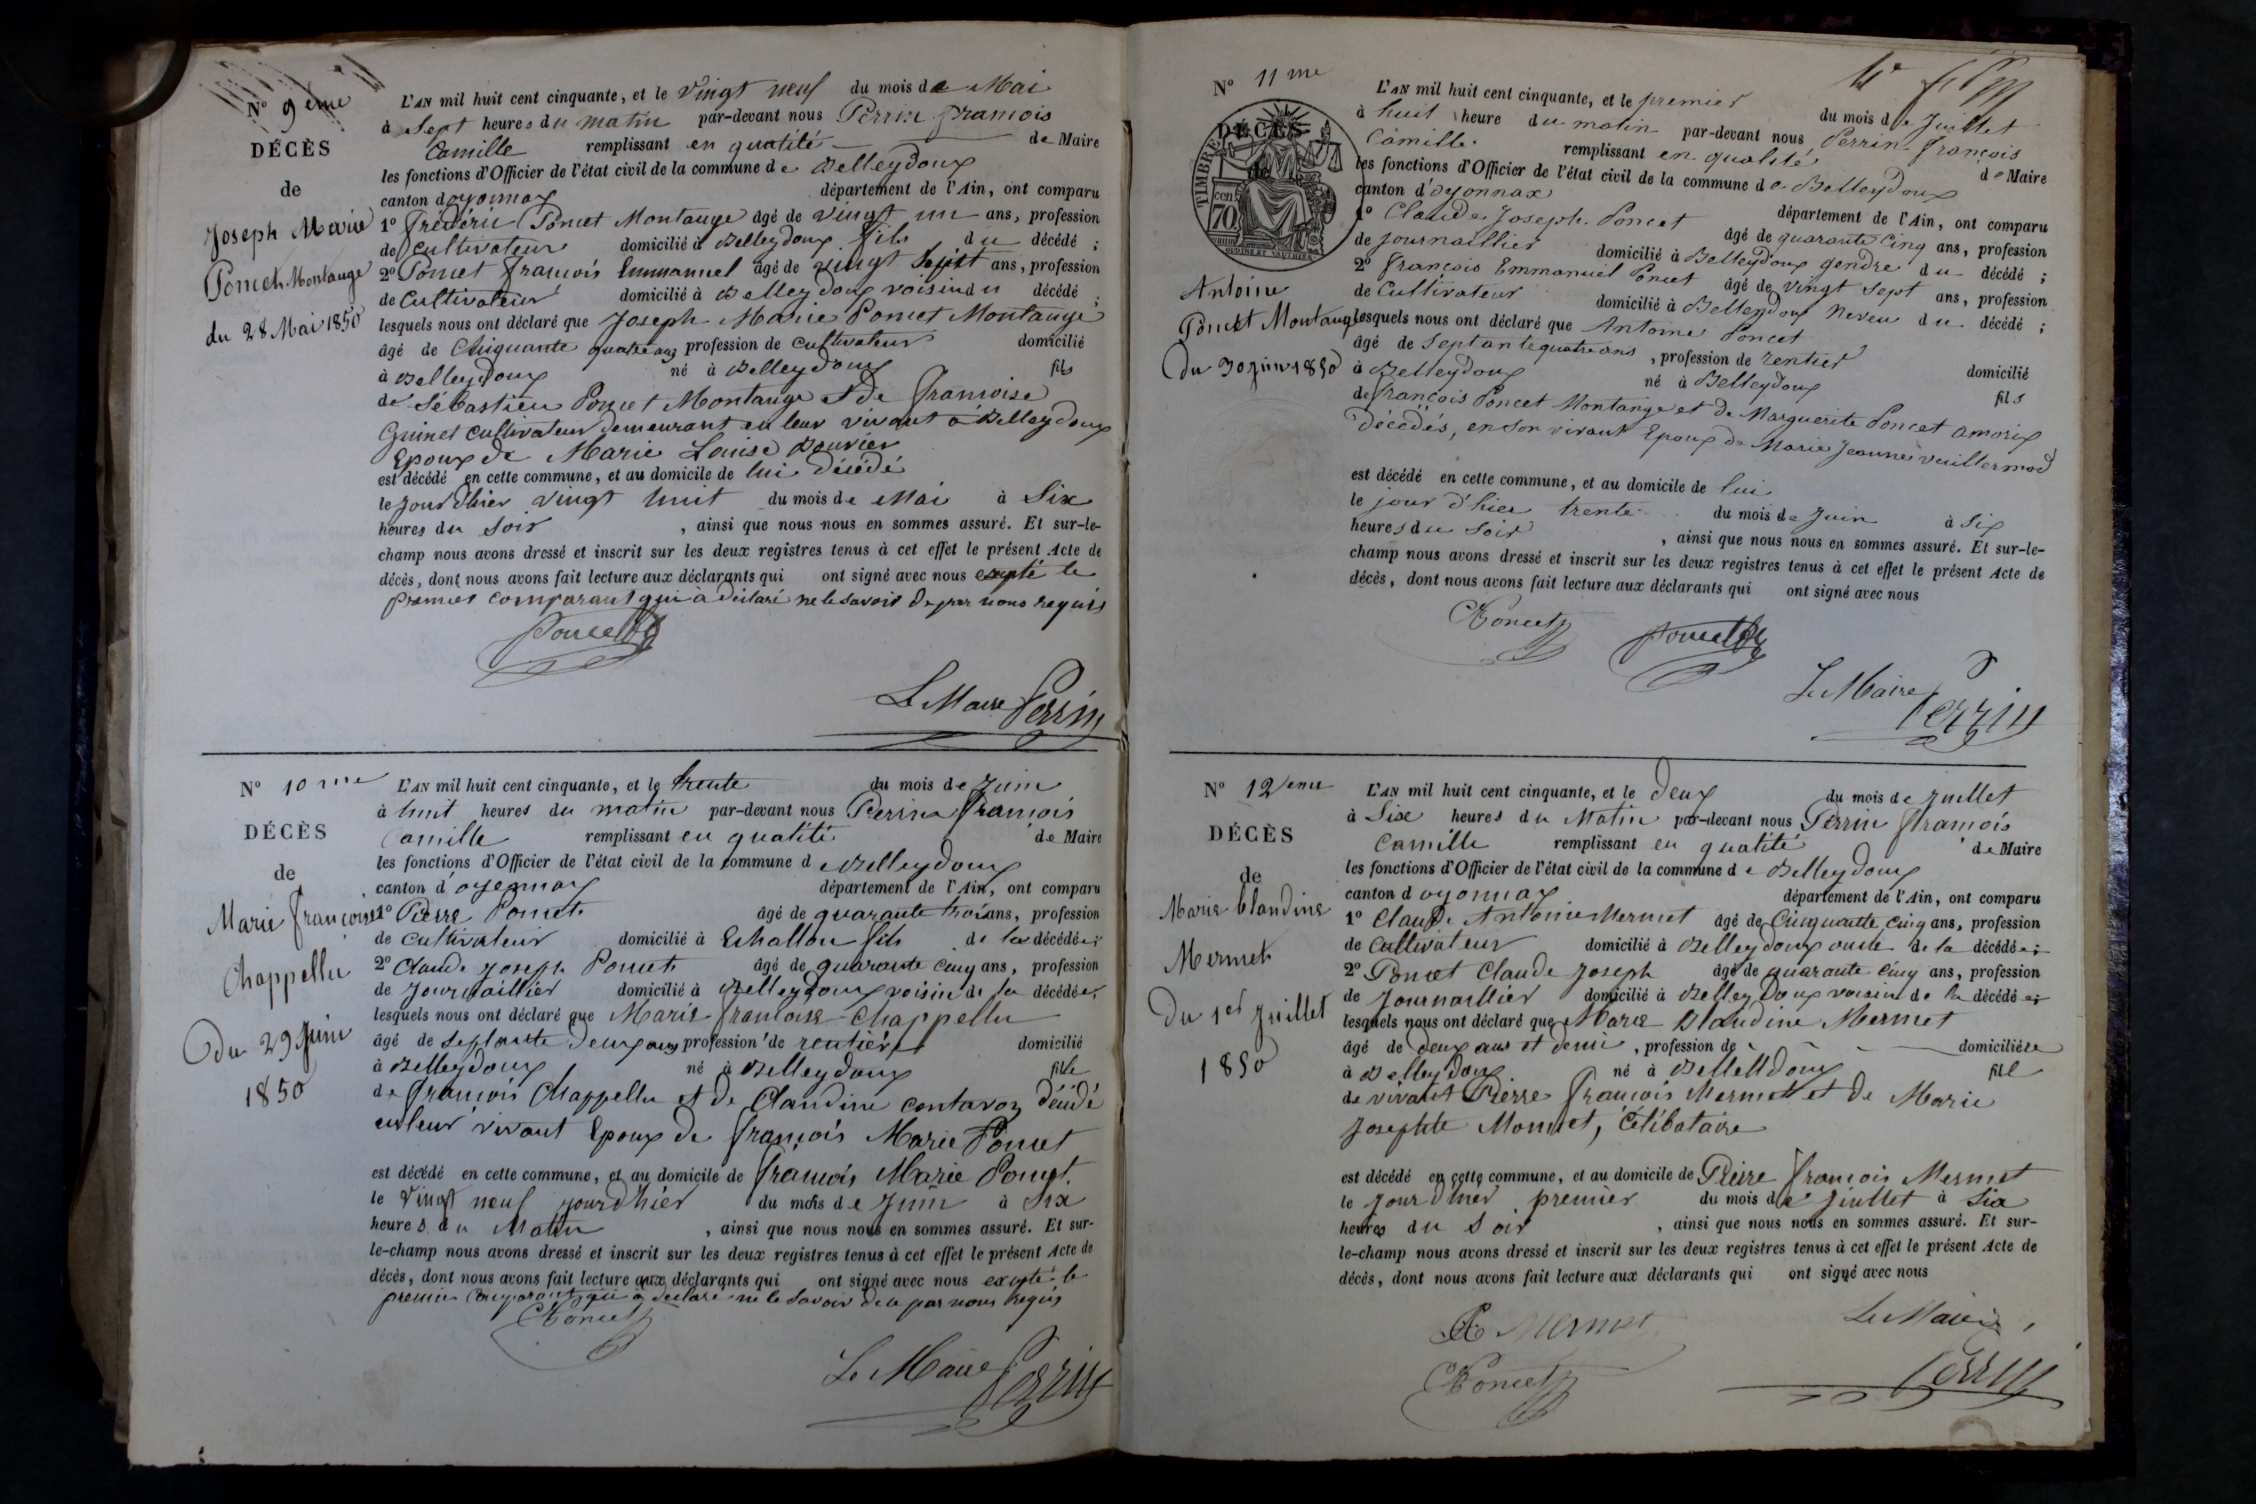 N° 9ème
DÉCÈS
de
Joseph Marie
Poncet Montange
du 28 Mai 1850
L'AN mil huit cent cinquante, et le vingt neuf du mois de Mai
à Sept heures du matin par-devant nous Perrin françois
Camille remplissant en qualité de Maire
les fonctions d'Officier de l'état civil de la commune de Belleydoux
canton d'oyonnax département de l'Ain, ont comparu
1° frédéric Poncet Montange âgé de vingt un ans, profession
de cultivateur domicilié à Belleydoux fils du décédé ;
2° Poncet françois Emmanuel âgé de vingt Sept ans, profession
de Cultivateur domicilié à Belleydoux voisin du décédé ;
lesquels nous ont déclaré que Joseph Marie Poncet Montange
âgé de Cinquante quatre ans profession de cultivateur domicilié
à Belleydoux né à Belleydoux fils
de Sébastien Poncet Montange et de françoise
Grinet cultivateur demeurant en leur vivant à Belleydoux
Epoux de Marie Louise Bouvier
est décédé en cette commune, et au domicile de lui décédé
le jour d'hier vingt huit du mois de Mai à Six
heures du soir , ainsi que nous nous en sommes assuré. Et sur-le-
champ nous avons dressé et inscrit sur les deux registres tenus à cet effet le présent Acte de
décès, dont nous avons fait lecture aux déclarants qui ont signé avec nous excepté le
premier comparant qui a déclaré ne le savoir de par nous requis
Poncet
Le Maire Perrin
N° 10me
DÉCÈS
de
Marie françoise
Chappellu
Du 29 Juin
1850
L'AN mil huit cent cinquante, et le trente du mois de Juin
à huit heures du matin par-devant nous Perrin françois
Camille remplissant en qualité de Maire
les fonctions d'Officier de l'état civil de la commune de Belleydoux
canton d'oyonnax département de l'Ain, ont comparu
1° Pierre Poncet âgé de quarante trois ans, profession
de cultivateur domicilié à Echallon fils de la décédée ;
2° Claude Joseph Poncet âgé de quarante cinq ans, profession
de Journaillier domicilié à Belleydoux voisin de la décédée ;
lesquels nous ont déclaré que Marie françoise Chappellu
âgé de septante deux ans profession de rentière domicilié
à Belleydoux né à Belleydoux fille
de françois Chappellu et de Claudine contavoz décédé
en leur vivant Epoux de françois Marie Poncet
est décédé en cette commune, et au domicile de françois Marie Poncet.
le vingt neuf jour d'hier du mois de Juin à Six
heures du Matin , ainsi que nous nous en sommes assuré. Et sur-
le-champ nous avons dressé et inscrit sur les deux registres tenus à cet effet le présent Acte de
décès, dont nous avons fait lecture aux déclarants qui ont signé avec nous excepté le
premier comparant qui a déclaré ne le savoir de par nous requis
Poncet
Le Maire Perrin
N° 11me
DÉCÈS
de
TIMBRE
70 cen
Antoine
Poncet Montange
Du 30 juin 1850
L'AN mil huit cent cinquante, et le premier du mois de Juillet
à huit heure du matin par-devant nous Perrin françois
Camille remplissant en qualité de Maire
les fonctions d'Officier de l'état civil de la commune de Belleydoux
canton d'oyonnax département de l'Ain, ont comparu
1° Claude Joseph Poncet âgé de quarante cinq ans, profession
de journaillier domicilié à Belleydoux gendre du décédé ;
2° françois Emmanuel Poncet âgé de vingt sept ans, profession
de Cultivateur domicilié à Belleydoux Neveu du décédé ;
lesquels nous ont déclaré que Antoine Poncet
âgé de septante quatre ans , profession de rentier domicilié
à Belleydoux né à Belleydoux fils
de françois Poncet Montange et de Marguerite Poncet amorix
décédés, en son vivant Epoux de Marie Jeanne vuillermod
est décédé en cette commune, et au domicile de lui
le jour d'hier trente du mois de Juin à Six
heures du soir , ainsi que nous nous en sommes assuré. Et sur-le-
champ nous avons dressé et inscrit sur les deux registres tenus à cet effet le présent Acte de
décès, dont nous avons fait lecture aux déclarants qui ont signé avec nous
Poncet Poncet
Le Maire Perrin
N° 12eme
DÉCÈS
de
Marie Claudine
Mermet
Du 1er Juillet
1850
L'AN mil huit cent cinquante, et le deux du mois de Juillet
à Six heures du Matin par-devant nous Perrin françois
Camille remplissant en qualité de Maire
les fonctions d'Officier de l'état civil de la commune de Belleydoux
canton d'oyonnax département de l'Ain, ont comparu
1° Claude Antoine Mermet âgé de Cinquante cinq ans, profession
de Cultivateur domicilié à Belleydoux oncle de la décédée ;
2° Poncet Claude Joseph âgé de quarante cinq ans, profession
de Journaillier domicilié à Belleydoux voisin de la décédée ;
lesquels nous ont déclaré que Marie Claudine Mermet
âgé de deux ans et demi , profession de domiciliée
à Belleydoux né à Belleydoux fille
de vivant Pierre françois Mermet et de Marie
Josephte Monnet, Célibataire
est décédé en cette commune, et au domicile de Pierre françois Mermet
le jour d'hier premier du mois de Juillet à Six
heures du Soir , ainsi que nous nous en sommes assuré. Et sur-
le-champ nous avons dressé et inscrit sur les deux registres tenus à cet effet le présent Acte de
décès, dont nous avons fait lecture aux déclarants qui ont signé avec nous
Mermet
Poncet
Le Maire
Perrin